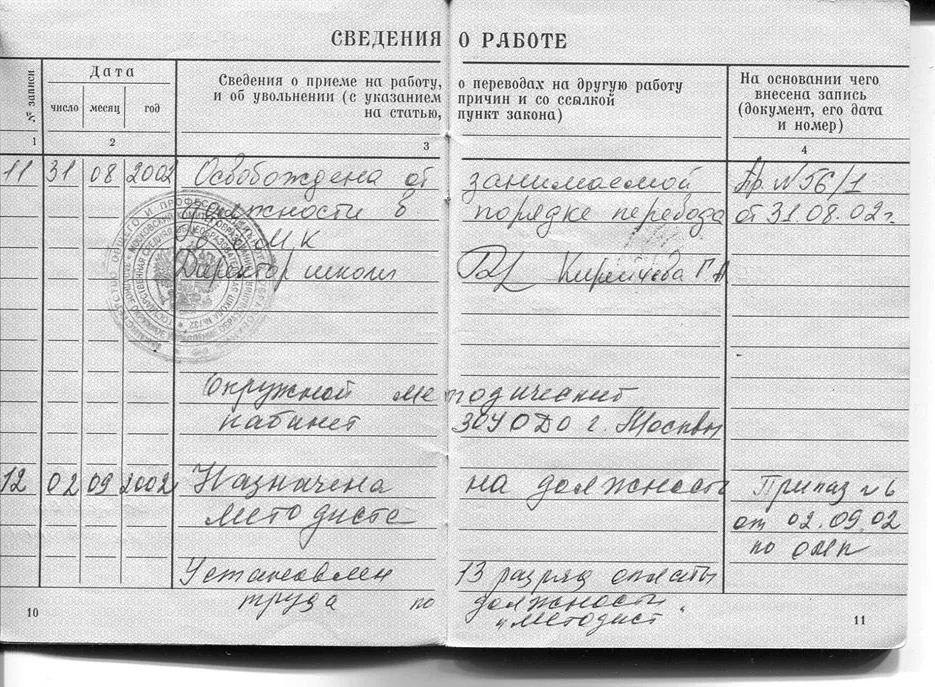 СВЕДЕНИЯ О РАБОТЕ
№ записи
Дата
число месяц год
Сведения о приеме на работу, о переводах на другую работу
и об увольнении (с указанием причин и со ссылкой
на статью, пункт закона)
На основании чего
внесена запись
(документ, его дата
и номер)
1 2 3 4
11 31 08 2002 Освобождена от занимаемой Пр. №56/1
должности в порядке перевода от 31.08.02г.
Директор школы Кирейчева Г.А
Окружной методический
кабинет ЗОУОДО г. Москвы
12 02 09 2002 Назначена на должность Приказ №6
методиста от 02.09.02
по ОМК
Установлен 13 разряд оплаты
труда по должности
"методист"
10
11